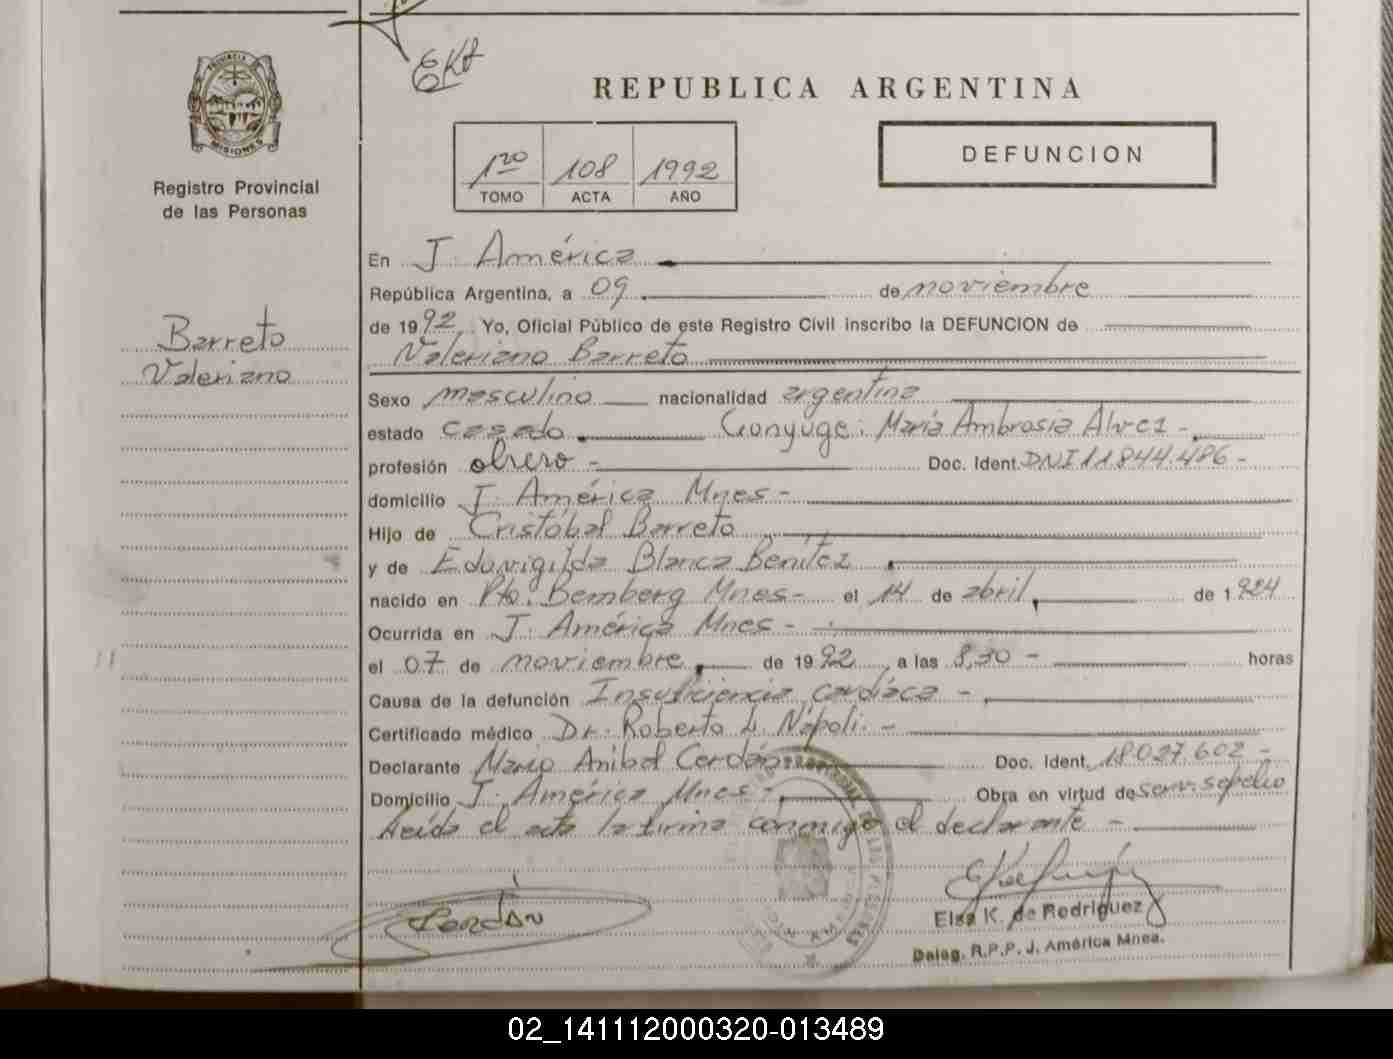 EKR
REPUBLICA ARGENTINA
PROVINCIA
MISIONES
Registro Provincial
de las Personas
1ro 108 1992
TOMO ACTA AÑO
DEFUNCION
Barreto
Valeriano
En J. América
República Argentina, a 09 de noviembre
de 1992 Yo, Oficial Público de este Registro Civil inscribo la DEFUNCION de
Valeriano Barreto
Sexo masculino nacionalidad argentina
estado casado. Conyuge: María Ambrosia Alvez -
profesión obrero - Doc. Ident. DNI 11844.486 -
domicilio J. América Mnes -
Hijo de Cristóbal Barreto
y de Eduvigilda Blanca Benítez
nacido en Pto. Bemberg Mnes - el 14 de abril, de 1924
Ocurrida en J. América Mnes -
el 07 de noviembre, de 1992 a las 8,30 - horas
Causa de la defunción Insuficiencia cardíaca -
Certificado médico Dr. Roberto L. Nápoli. -
Declarante Mario Anibal Cerdán Doc. Ident. 18.027.602 -
Domicilio J. América Mnes - Obra en virtud de serv. sepelio
Leída el acta la firma conmigo el declarante -
Cerdán
Elsa K. de Rodriguez
Deleg. R.P.P. J. América Mnes.
02_141112000320-013489